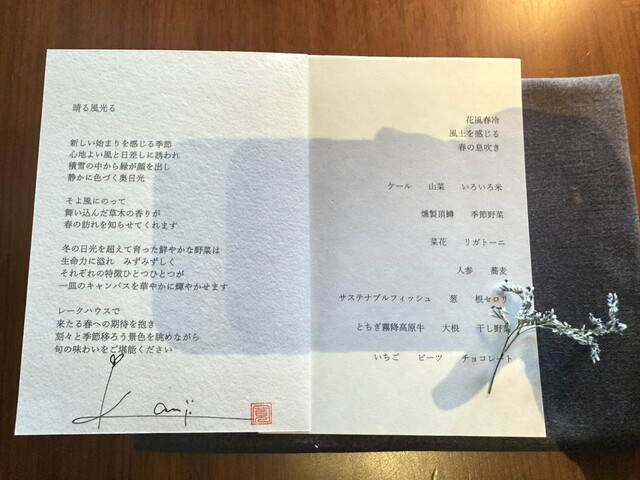 晴る風光る
新しい始まりを感じる季節
心地よい風と日差しに誘われ
積雪の中から緑が顔を出し
静かに色づく奥日光
そよ風にのって
舞い込んだ草木の香りが
春の訪れを知らせてくれます
冬の日光を超えて育った鮮やかな野菜は
生命力に溢れ みずみずしく
それぞれの特徴ひとつひとつが
一皿のキャンバスを華やかに輝やかせます
レークハウスで
来たる春への期待を抱き
刻々と季節移ろう景色を眺めながら
旬の味わいをご堪能ください
花風春冷
風土を感じる
春の息吹き
ケール 山菜 いろいろ米
燻製頂鱒 季節野菜
菜花 リガトーニ
人参 蕎麦
サステナブルフィッシュ 葱 根セロリ
とちぎ霧降高原牛 大根 干し野菜
いちご ビーツ チョコレート